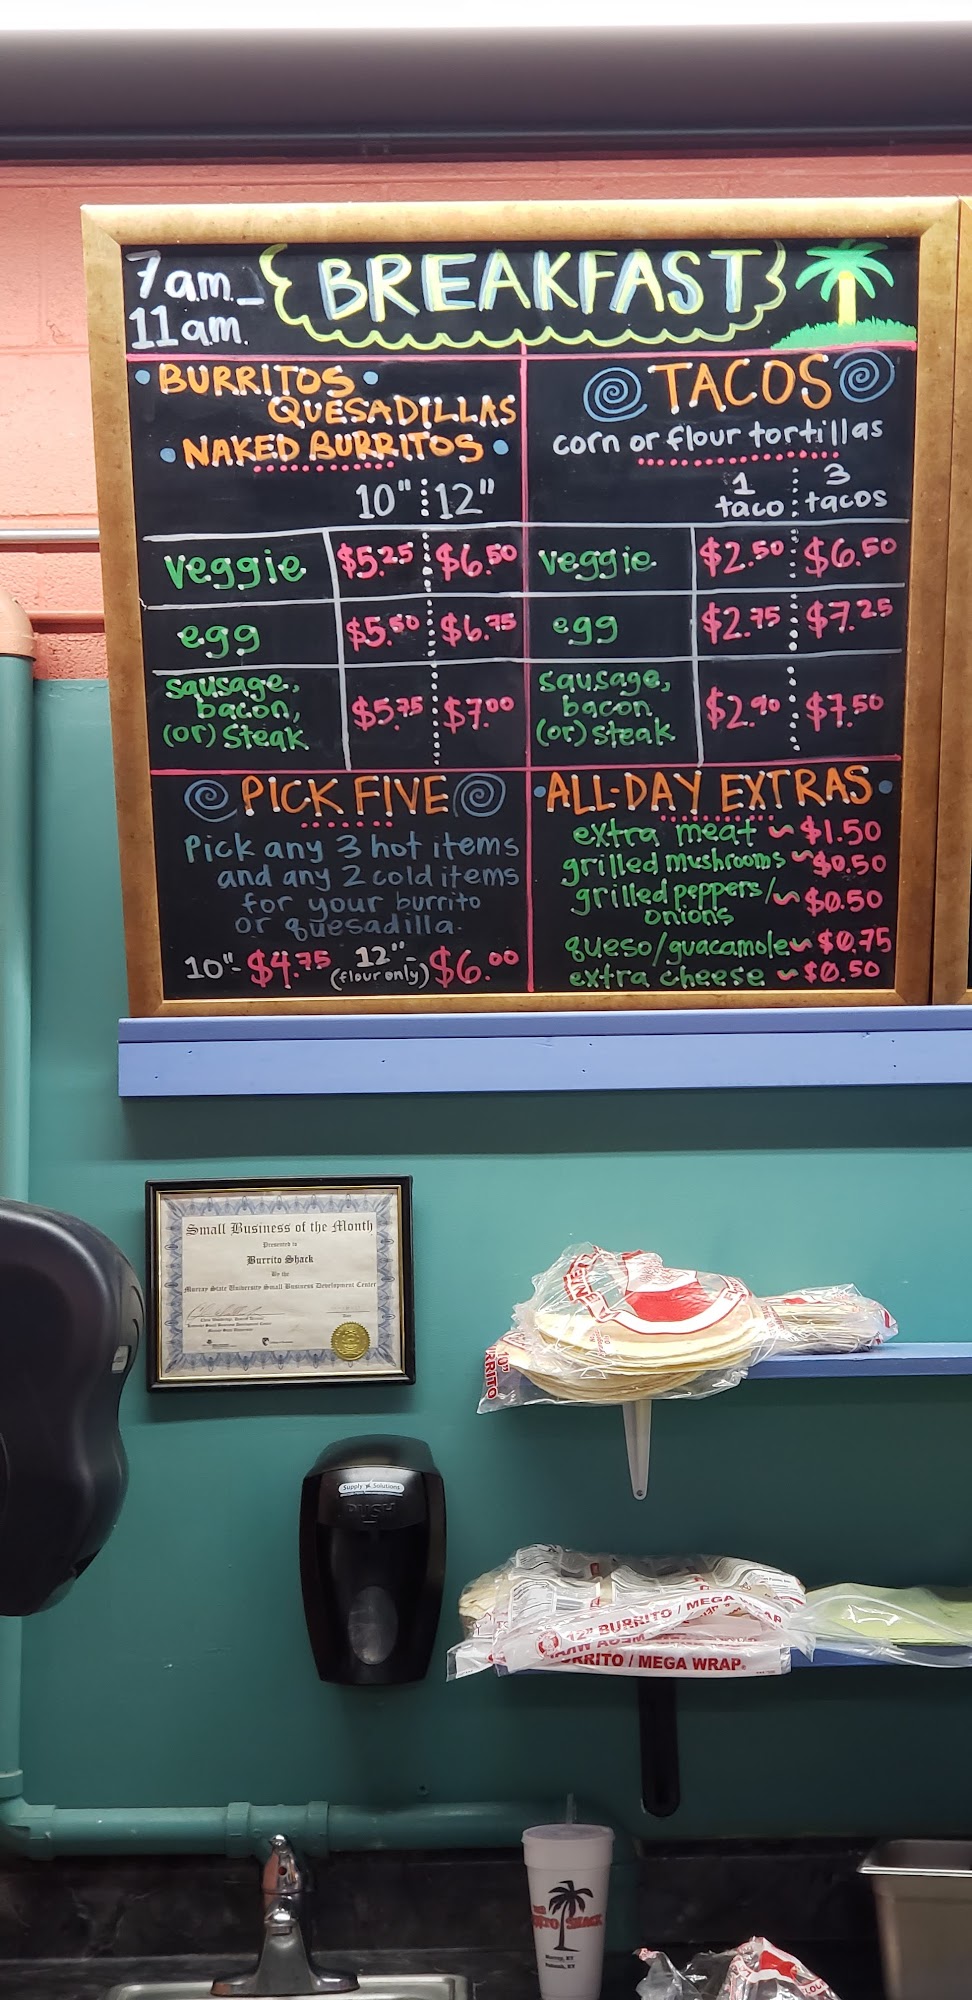 7am-
11am.
BREAKFAST
• BURRITOS •
QUESADILLAS
• NAKED BURRITOS •
10" 12"
veggie $5.25 $6.50
egg $5.50 $6.75
sausage,
bacon,
(or) steak $5.75 $7.00
TACOS
corn or flour tortillas
1 taco 3 tacos
veggie $2.50 $6.50
egg $2.75 $7.25
sausage,
bacon
(or) steak $2.90 $7.50
PICK FIVE
Pick any 3 hot items
and any 2 cold items
for your burrito
or quesadilla.
10"- $4.75 12"- (flour only) $6.00
• ALL-DAY EXTRAS •
extra meat ~ $1.50
grilled mushrooms ~ $0.50
grilled peppers/ ~ $0.50
onions
queso/guacamole ~ $0.75
extra cheese ~ $0.50
Small Business of the Month
Presented to
Burrito Shack
By the
Murray State University Small Business Development Center
Supply Solutions
PUSH
12" BURRITO / MEGA WRAP
BURRITO / MEGA WRAP
SHACK